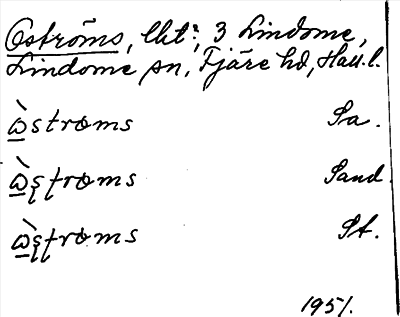 Öströms, lht?, 3 Lindome,
Lindome sn, Fjäre hd, Hall. l.
ὼstroms Sa.
ὼʂtroms Sand.
ὼʂtroms St.
1951.